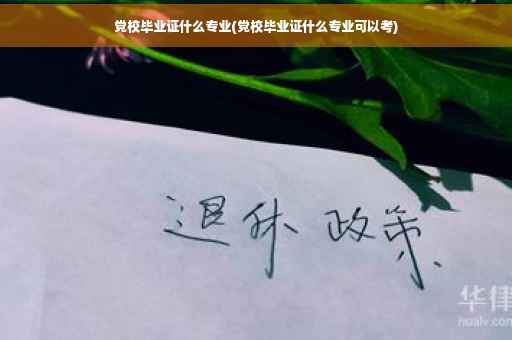 党校毕业证什么专业(党校毕业证什么专业可以考)
退休 政策
华律
hualv.com